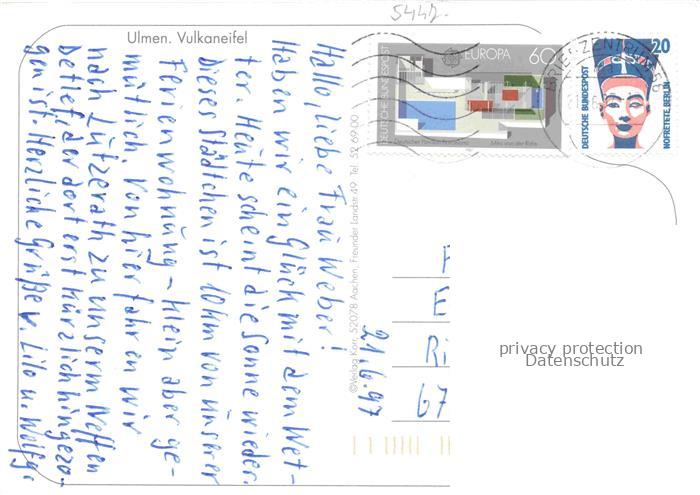 5442.
Ulmen. Vulkaneifel
Hallo, liebe Frau Weber!
Haben wir ein Glück mit dem Wet-
ter. Heute scheint die Sonne wieder.
Dieses Städtchen ist 10 km von unserer
Ferienwohnung - klein aber ge-
mütlich. Von hier fahren wir
nach Lutzerath zu unserm Neffen
Detlef, der dort erst kürzlich hingezo-
gen ist. Herzliche Grüße v. Lilo u. Wolfg.
©Verlag Korr, 52078 Aachen, Freunder Landstr. 49 Tel. 52 69 00
21.6.97
DEUTSCHE BUNDESPOST
EUROPA 60
Mies van der Rohe
BRIEFZENTRUM
20
DEUTSCHE BUNDESPOST
NOFRETETE, BERLIN
F
E
Ri
67
privacy protection
Datenschutz